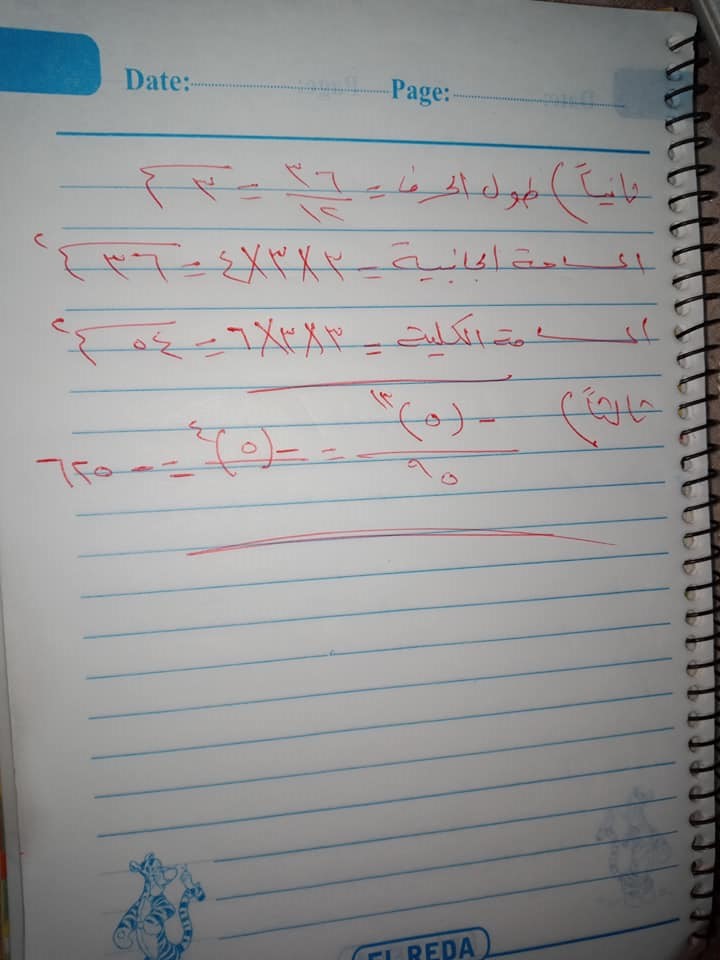 Date: Page:
ثانياً) طول الحرف = ٣٦/١٢ = ٣ سم
المساحة الجانبية = ٣×٣×٤ = ٣٦ سم٢
المساحة الكلية = ٣×٣×٦ = ٥٤ سم٢
ثالثاً) -(٥)١٣/٥٩ = -(٥)٤ = -٦٢٥
EL REDA